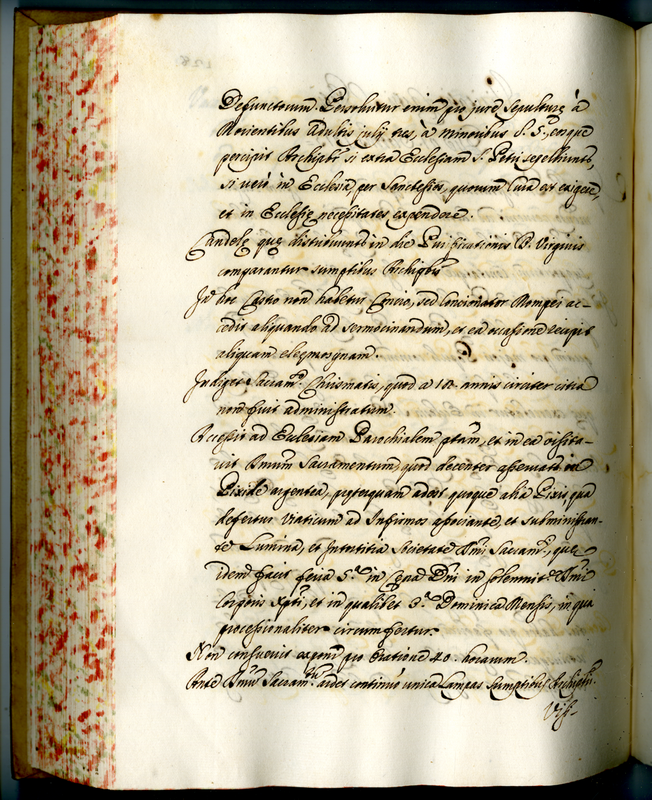 Defunctorum. Persolvitur enim pro jure sepulturę à
Morientibus Adultis julij tres, à minoribus S. 5, eosque
percipit Archipbr si extra Ecclesiam S. Petri sepeliunt,
si verò in Ecclesia, per Sanctesios, quorum Cura est exigere,
et in Ecclesię necessitates expendere.
Candelę quę distribuuntr in die Purificationis B. Virginis
comparantur sumptibus Archipbri
In hoc Castro non habetur Concio, sed Concionator Pompei ac-
cedit aliquando ad sermocinandum, et ea occasione recipit
aliquam eleemosynam.
Indiget Sacramto Chrismatis, quod a 10. annis circiter citra
non fuit administratum.
Accessit ad Ecclesiam Parochialem ptam, et in ea visita-
vit Smum Sacramentum, quod decenter asservatr in
Pixide argentea, pręterquam adest quoque alia Pixis, qua
defertur Viaticum ad Infirmos associante, et subministran-
te Lumina, et Intortitia Societate Smi Sacramti, quę
idem facit feria 5.a in Cęna Dni in solemnite Smi
Corporis Xpti, et in qualibet 3.a Dominica Mensis, in qua
processionaliter circumfertur.
Non consuevit exponi pro Oratione 40. horarum.
Ante Smum Sacramtum ardet continuò unica Lampas sumptibus Archipbri.
Visi-